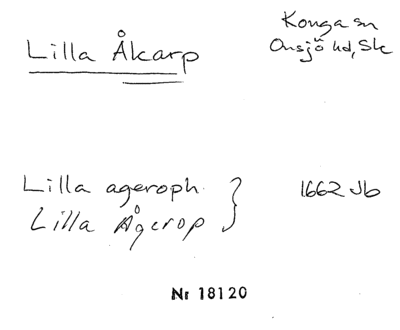 Lilla Åkarp
Konga sn
Onsjö hd, Sk
Lilla ageroph.
Lilla Ågerop
1662 Jb
Nr 18120